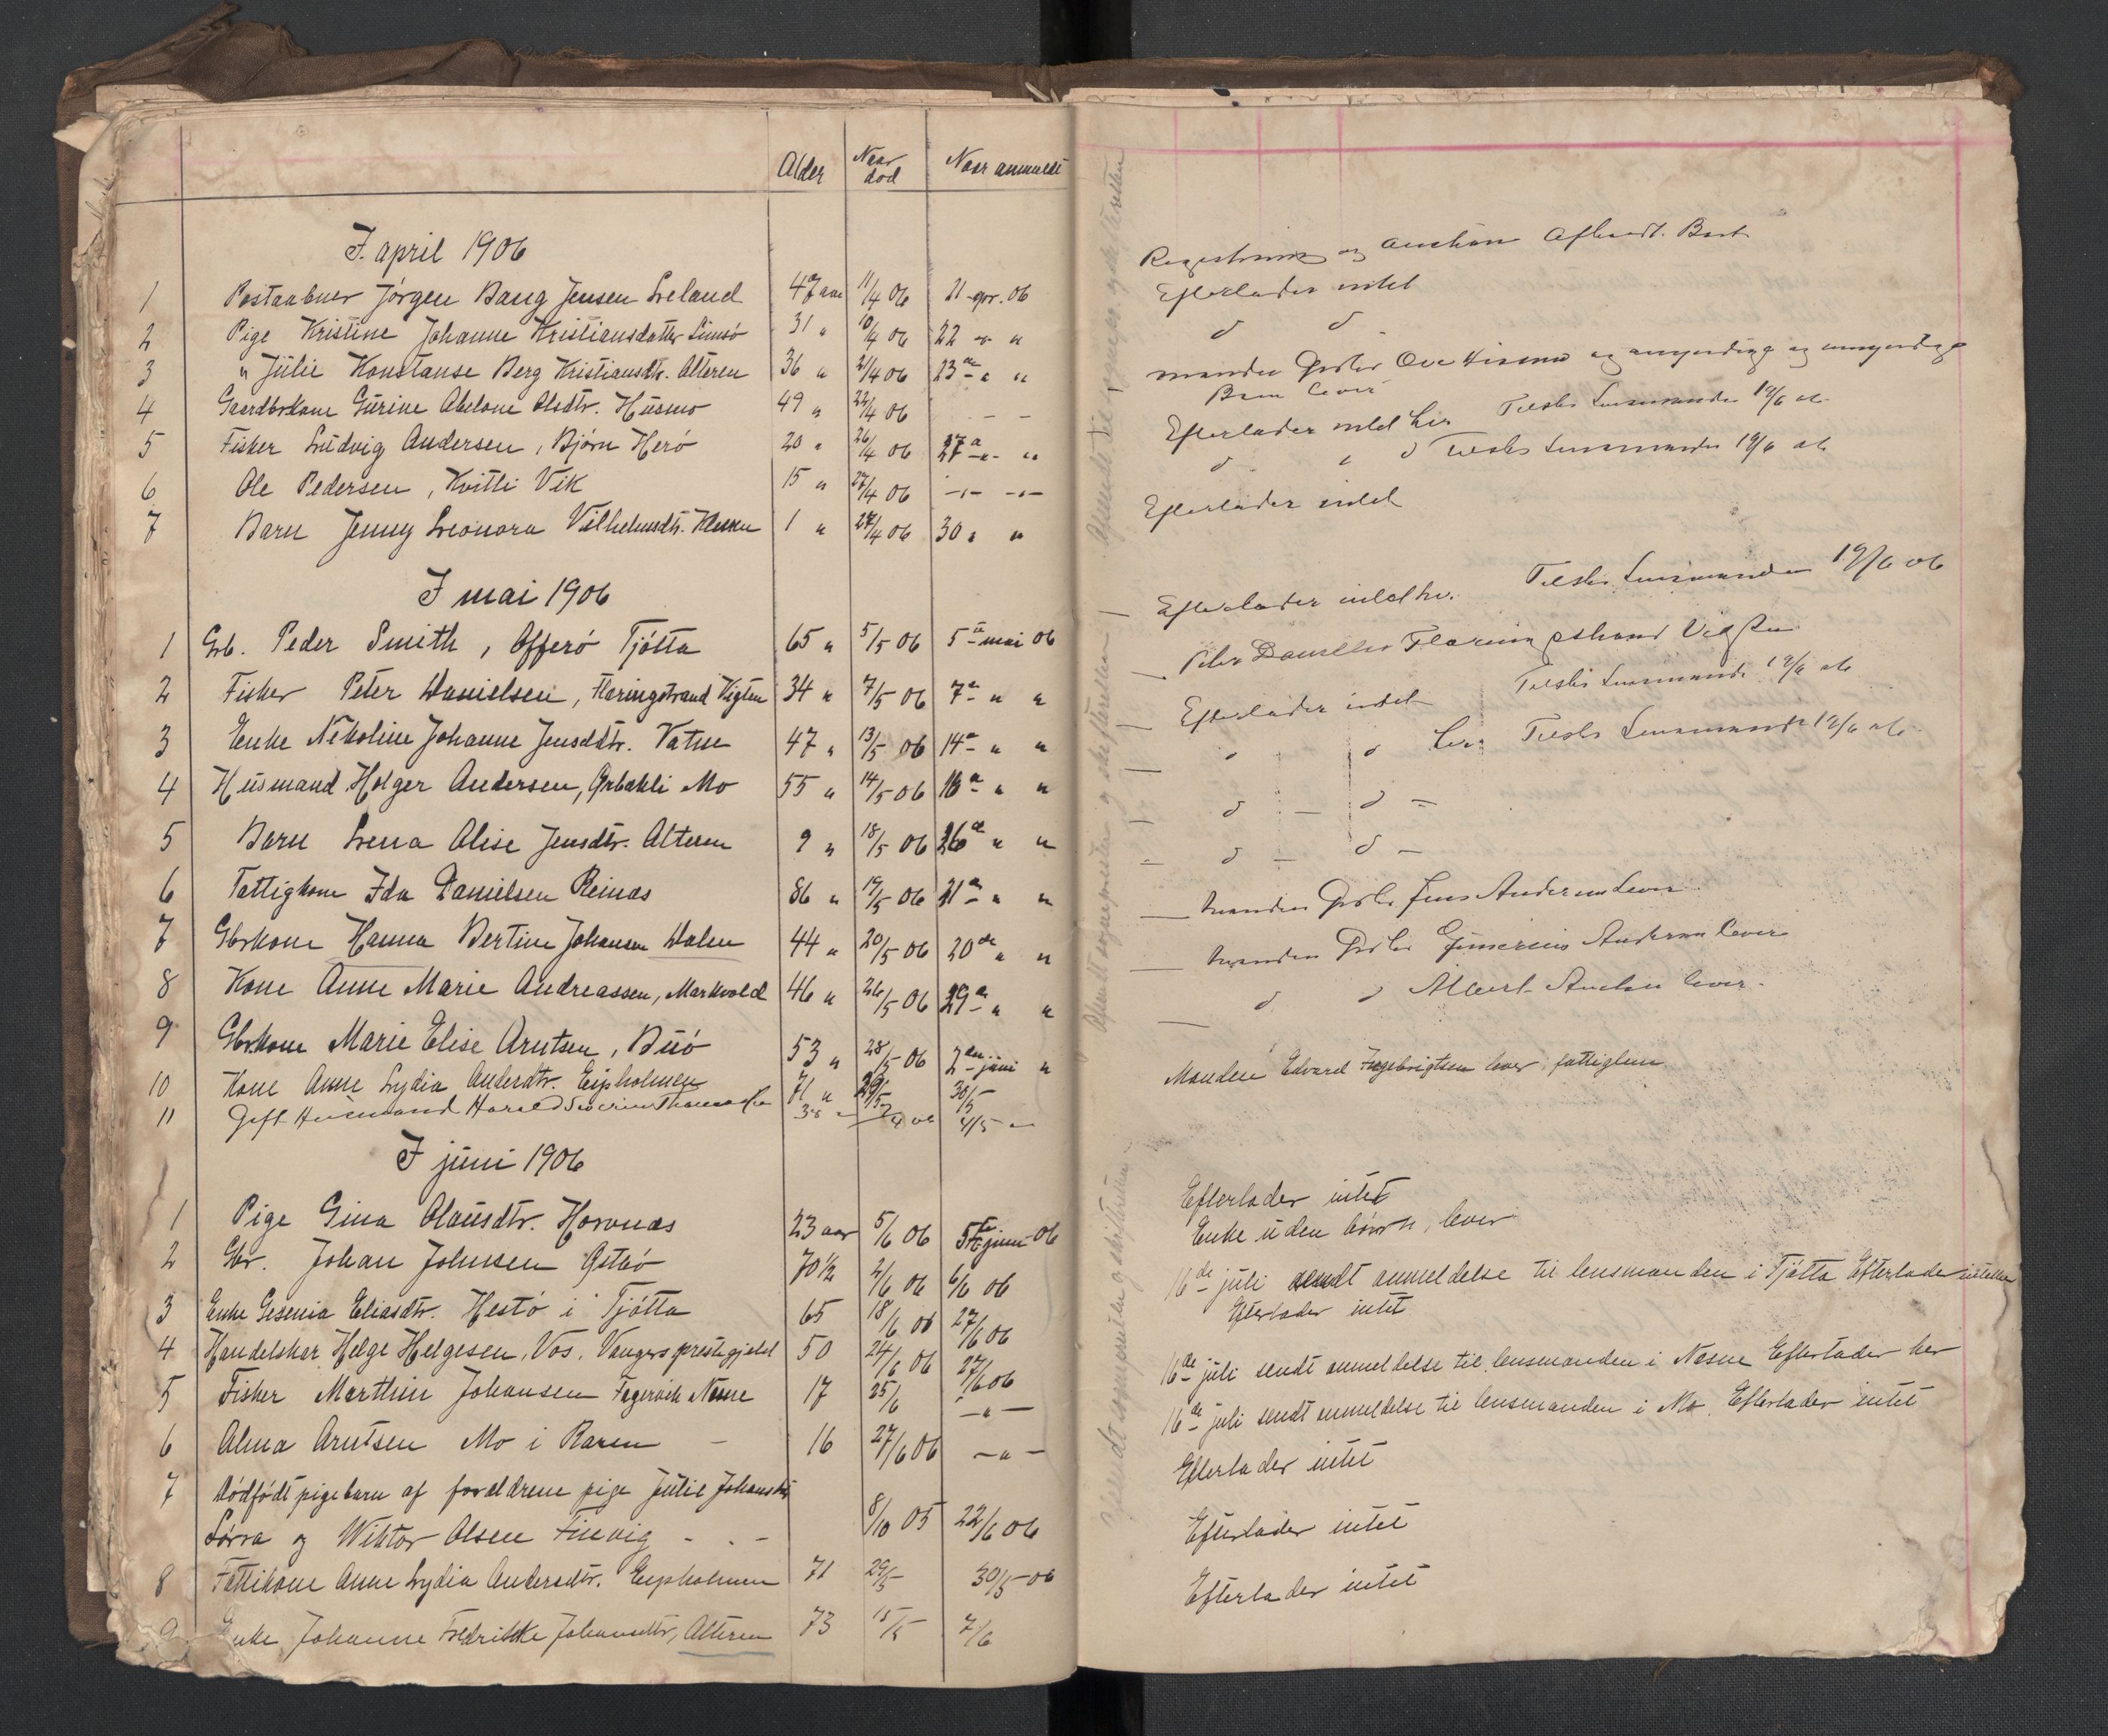 Alder Naar død Naar anmeldt
I april 1906
1 Postaabner Jørgen Bang Jensen Leland 47 aar 11/4 06 21 apr. 06
2 Pige Kristine Johanne Kristiansdatter 31 " 10/4 06 22 " "
3 " Julie Konstanse Berg Kristiansdtr. Alteren 36 " 2/4 06 23 " "
4 Gaardbrkone Gurine Abelone Olsdtr. Husmo 49 " 22/4 06 — —
5 Fisker Ludvig Andersen, Bjørn Herø 20 " 26/4 06 27 " "
6 Ole Pedersen, Kvitli Vik 15 " 27/4 06 —"— —"—
7 Barn Jenny Leonora Vilhelmsdtr. 1 " 27/4 06 30 " "
I mai 1906
1 Grb. Peder Smith, Offerø Tjøtta 65 " 5/5 06 5te mai 06
2 Fisker Peter Danielsen, Flaringstrand Vigten 34 " 7/5 06 7de " "
3 Enke Nikoline Johanne Jensddtr. Vatne 47 " 13/5 06 14de " "
4 Husmand Holger Andersen, Mo 55 " 14/5 06 16de " "
5 Barn Lena Alise Jensdtr. Alteren 9 " 18/5 06 26de " "
6 Fattigkone Ida Danielsen Reinaas 86 " 19/5 06 21de " "
7 Gbrkone Hanna Bertine Johansen Dalen 44 " 20/5 06 20de " "
8 Kone Anne Marie Andreassen, Markvold 46 " 26/5 06 29de " "
9 Gbrkone Marie Elise Arntsen, Buø 53 " 28/5 06 2den juni "
10 Kone Anne Lydia Andersdtr. Eipholmen 71 " 29/5 30/5
11 Gift Husmand Harald Severin 38 4/5
I juni 1906
1 Pige Gina Olausdtr. Horvnæs 23 aar 5/6 06 5te juni 06
2 Gbr. Johan Johnsen Østbø 70 1/2 2/6 06 6/6 06
3 Enke Gesenia Eliasdtr. Hestø i Tjøtta 65 18/6 06 27/6 06
4 Handelskar Helge Helgesen, Vos, Vangers prestegjeld 50 24/6 06 27/6 06
5 Fisker Marthin Johansen Fagervik Nesne 17 25/6 —"—
6 Alma Arntsen Mo i Ranen — 16 27/6 06 —"—
7 Dødfødt pigebarn af forældrene pige Julie Johansdtr
Sørra og Wiktor Olsen Finvig - . - 8/10 05 22/6 06
8 Fattikone Anne Lydia Andersdtr. Eipholmen 71 29/5 30/5 06
9 Enke Johanne Fredrikke Johansdtr, Alteren 73 15/5 7/6
Registrering og auktion Afholdt. Bort
Efterlader intet
d d
manden Gbr Ove Husmo og myndige og umyndige
Børn lever
Efterlader intet her Tilskr Lensmanden 19/6 06
d " d Tilskr Lensmanden 19/6 06
Efterlader intet
Efterlader intet her. Tilskr Lensmanden 19/6 06
Peter Danielsen Flaringstrand Vigten
Efterlader intet Tilskr Lensmanden 19/6 06
" d her Tilskr Lensmanden 19/6 06
d — d —
d — d —
manden Gbr Jens Andersen Lever
manden Gbr Andersen lever
d d Albert lever.
Manden Edvard Ingebrigtsen lever, fattiglem
Efterlader intet
Enke uden børn, lever
16de juli sendt anmeldelse til lensmanden i Tjøtta Efterlader
Efterlader intet
16de juli sendt anmeldelse til lensmanden i Nesne Efterlader her
16de juli sendt anmeldelse til lensmanden i Mo. Efterlader intet
Efterlader intet
Efterlader intet
Efterlader intet